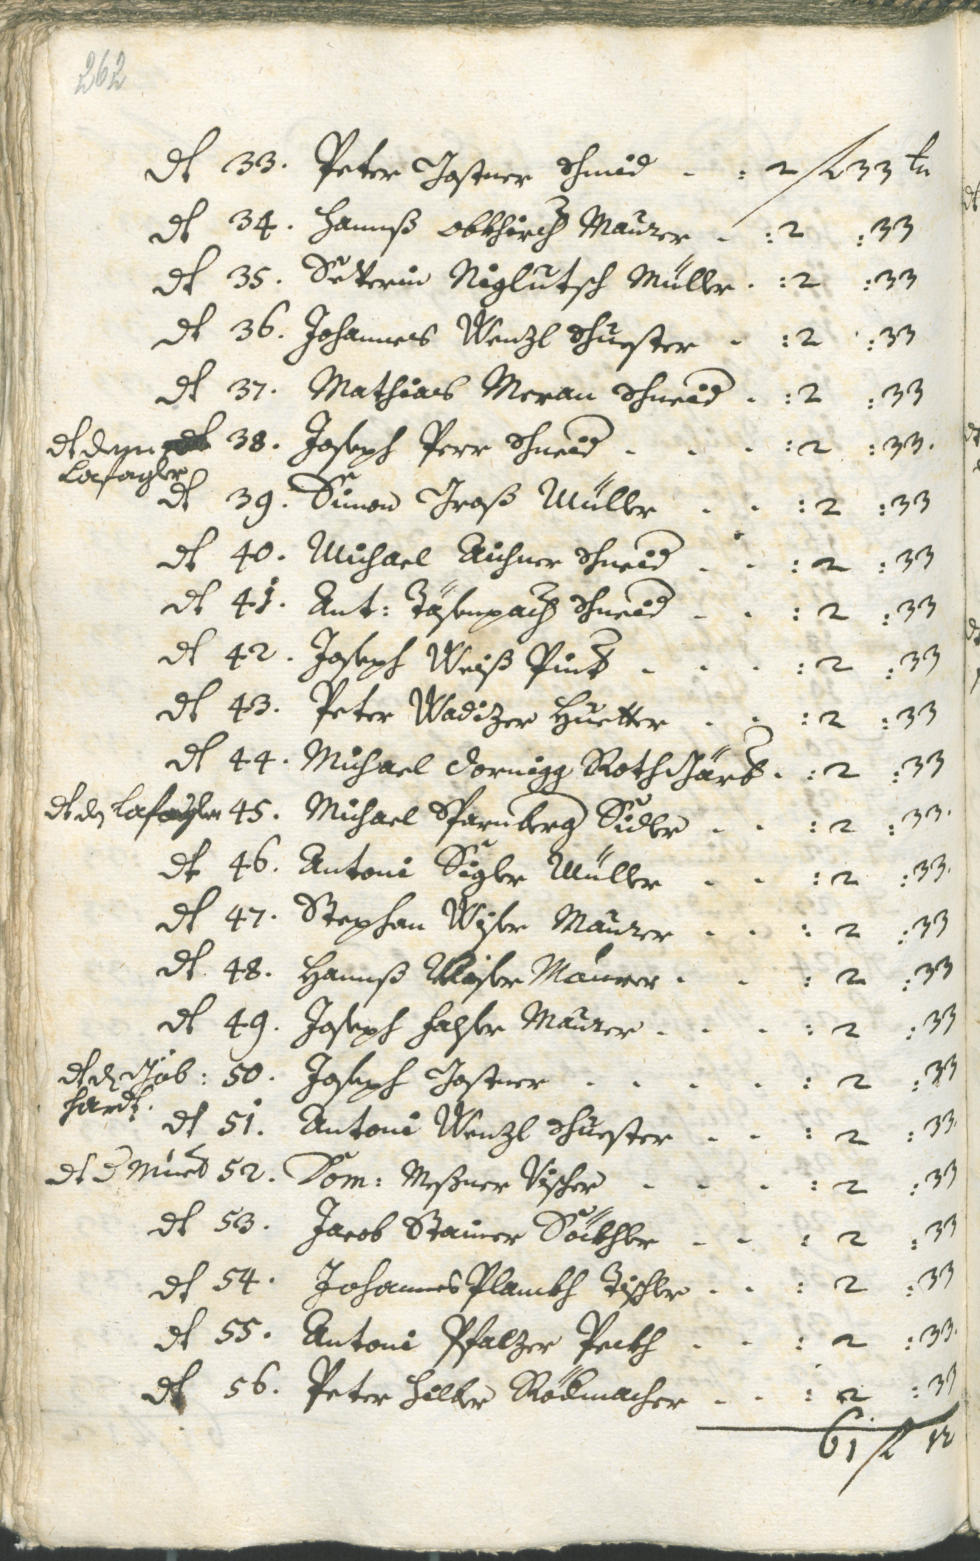 262
dt 33. Peter Jostner Schmid - : 2 / 33 kr
dt 34. Hannß Obkhirch Maurer - : 2 : 33
dt 35. Severin Niglutsch Müller . : 2 : 33
dt 36. Johannes Wenzl Schuester - : 2 : 33
dt 37. Mathias Meran Schneid - : 2 : 33
dt dem dt 38. Joseph Perr Schneid - - - : 2 : 33.
dt 39. Simon Groß Müller - - : 2 : 33
dt 40. Michael Aichner Schneid - - : 2 : 33
dt 41. Ant: Täsenpach Schneid - - : 2 : 33
dt 42. Joseph Weiß Pint - - - : 2 : 33
dt 43. Peter Wadizer Huetter - - : 2 : 33
dt 44. Michael Dornigg Roth - : 2 : 33
dt 45. Michael Sparnberg Sidler - - : 2 : 33.
dt 46. Antoni Sigler Müller - - : 2 : 33.
dt 47. Stephan Wiser Maurer - - : 2 : 33
dt 48. Hannß Wiser Maurer - - : 2 : 33
dt 49. Joseph Hasler Maurer - - - : 2 : 33
dt 50. Joseph Jostner - - - - - : 2 : 33
dt 51. Antoni Wenzl Schuester - - : 2 : 33
dt 52. Dom: Meßner Vischer - - - : 2 : 33
dt 53. Jacob Stainer - - : 2 : 33
dt 54. Johannes Planckh Tischler - - : 2 : 33
dt 55. Antoni Pfalzer Peckh - - : 2 : 33.
dt 56. Peter Hilber Rödlmacher - - : 2 : 33
61 / 12